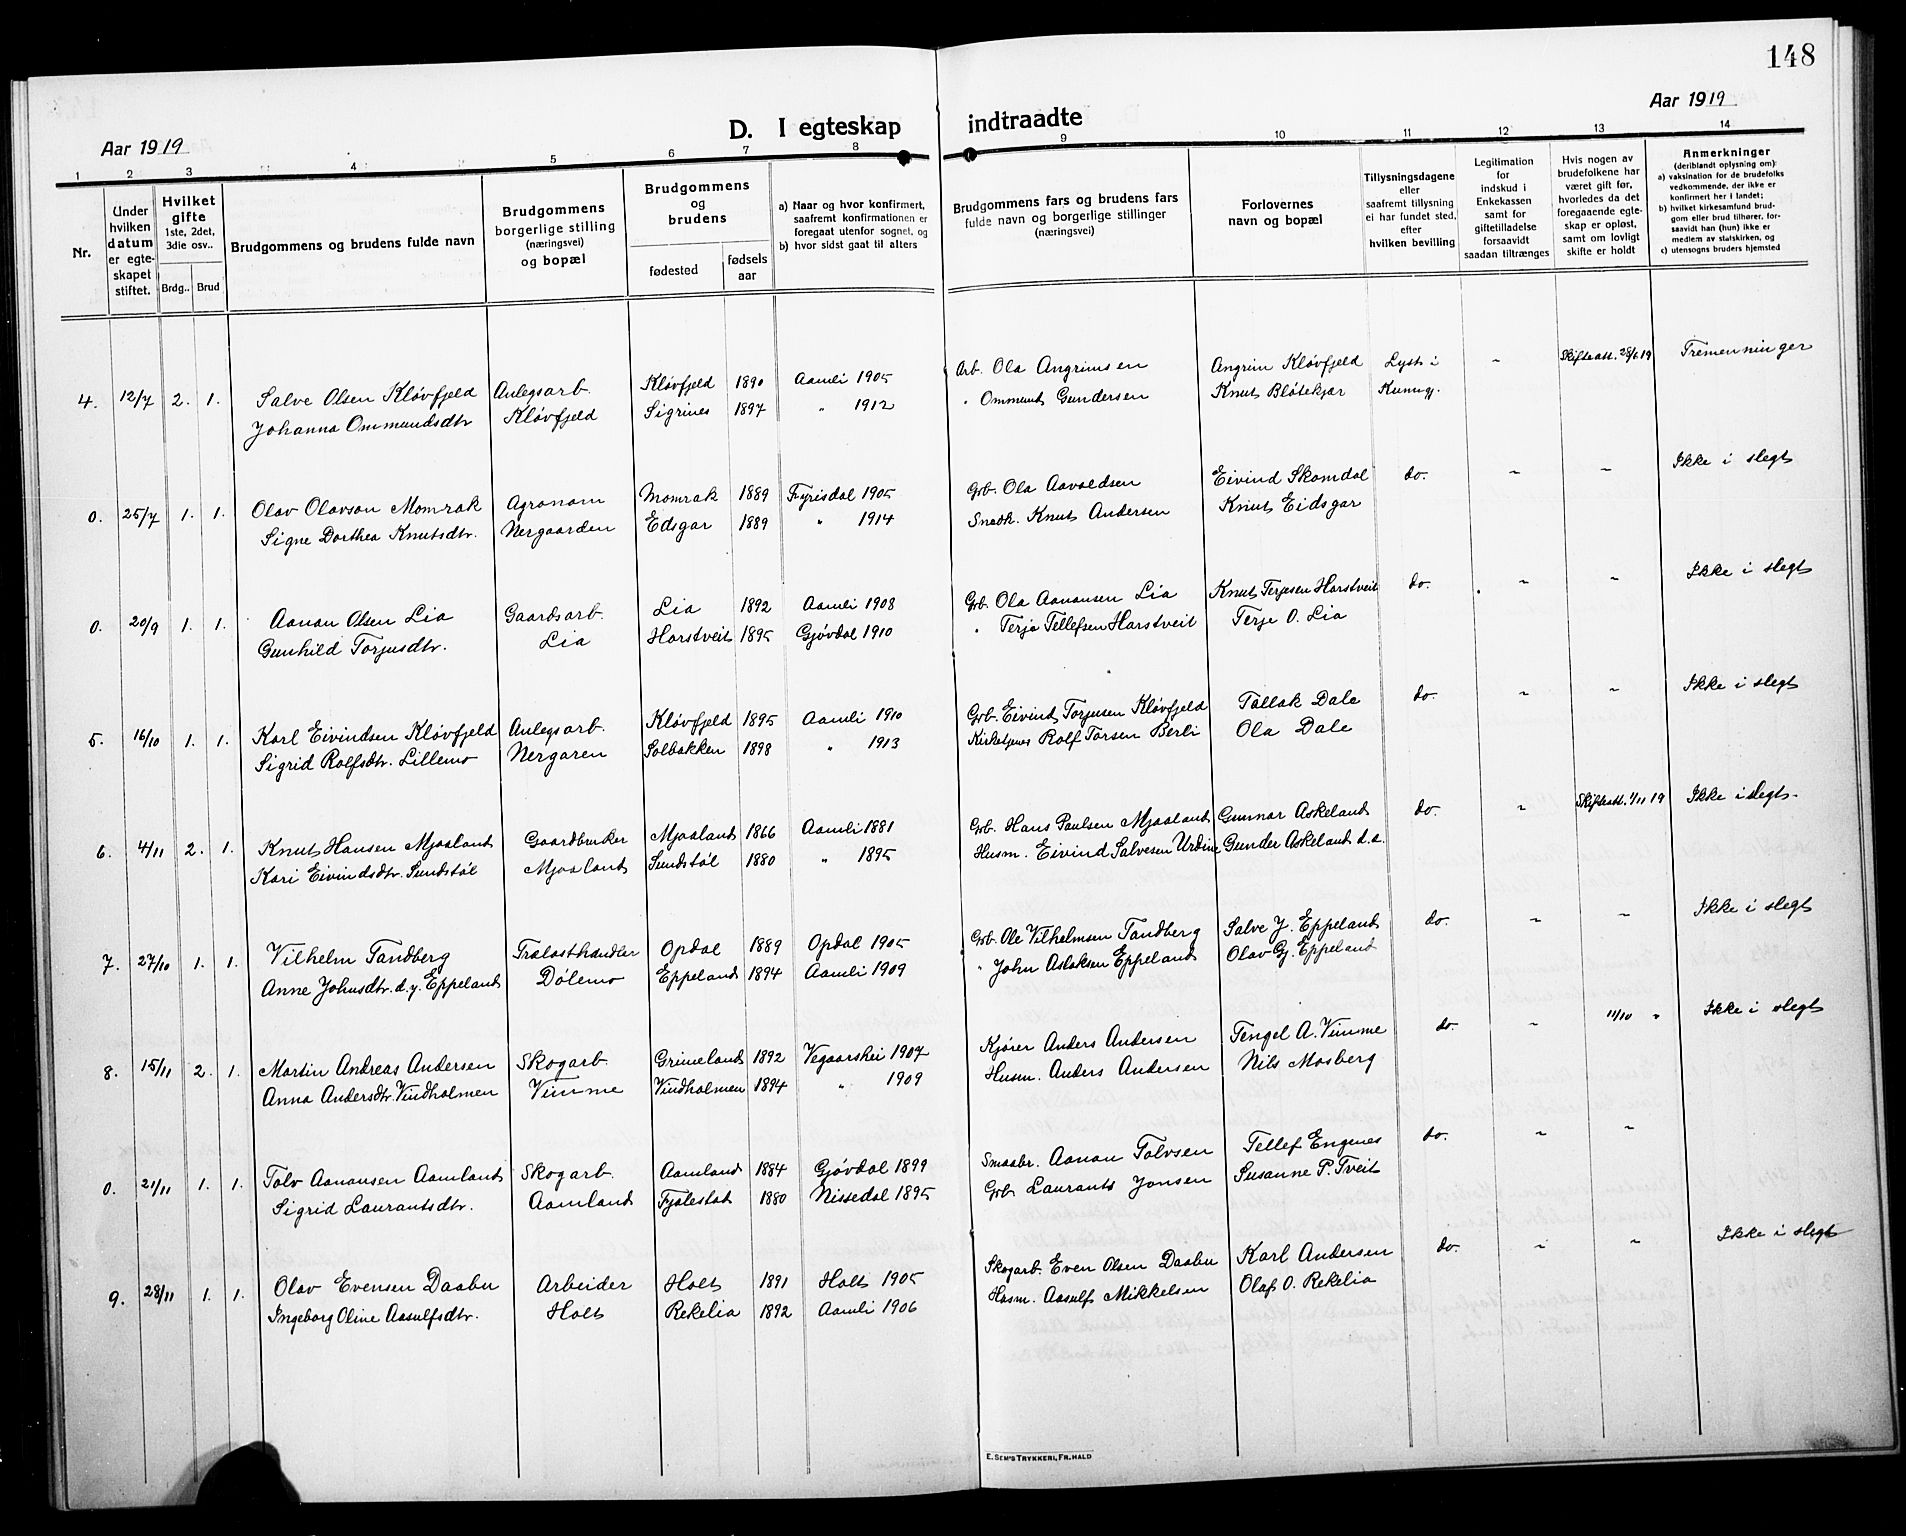 148
Aar 1919
D. I egteskap indtraadte
Aar 1919
1 2 3 4 5 6 7 8 9 10 11 12 13 14
Nr.
Under hvilken datum er egteskapet stiftet.
Hvilket gifte 1ste, 2det, 3die osv..
Brdg.. Brud
Brudgommens og brudens fulde navn
Brudgommens borgerlige stilling (næringsvei) og bopæl
Brudgommens og brudens
fødested
fødselsaar
a) Naar og hvor konfirmert, saafremt konfirmationen er foregaat utenfor sognet, og
b) hvor sidst gaat til alters
Brudgommens fars og brudens fars fulde navn og borgerlige stillinger (næringsvei)
Forlovernes navn og bopæl
Tillysningsdagene eller saafremt tillysning ei har fundet sted, efter hvilken bevilling
Legitimation for indskud i Enkekassen samt for giftetilladelse forsaavidt saadan tiltrænges
Hvis nogen av brudefolkene har været gift før, hvorledes da det foregaaende egteskap er opløst, samt om lovligt skifte er holdt
Anmerkninger (deriblandt oplysning om):
a) vaksination for de brudefolks vedkommende, der ikke er konfirmert her i landet;
b) hvilket kirkesamfund brudgom eller brud tilhører, forsaavidt han (hun) ikke er medlem av statskirken, og
c) utensogns bruders hjemsted
4. 12/7 2. 1. Salve Olsen Kløvfjeld Anlegsarb. Kløvfjeld 1890 Aamli 1905 Arb. Ola Angrimsen Angrim Kløvfjeld Lyst i ~ Skifteatt. 28/6 19 Tremenninger
Johanna Ommundsdtr Kløvfjeld Sigrines 1897 " 1912 " Ommund Gundersen Knut Bløtekjær Kunng.
0. 25/7 1. 1. Olav Olavson Momrak Agronom Momrak 1889 Fyrisdal 1905 Grb. Ola Aavoldsen Eivind Skomdal do. ~ ~ Ikke i slegt
Signe Dorthea Knutsdtr. Nergaarden Edsgar 1889 " 1914 Snedk. Knut Andersen Knut Eidsgar
0. 20/9 1. 1. Aanan Olsen Lia Gaardsarb. Lia 1892 Aamli 1908 Grb. Ola Aanansen Lia Knut Terjesen Harstveit do. ~ ~ Ikke i slegt
Gunhild Torjusdtr. Lia Harstveit 1895 Gjøvdal 1910 " Terje Tellefsen Harstveit Terje O. Lia
5. 16/10 1. 1. Karl Eivindsen Kløvfjeld Anlegsarb. Kløvfjeld 1895 Aamli 1910 Grb. Eivind Torjusen Kløvfjeld Tallak Dale do. ~ ~ Ikke i slegt
Sigrid Rolfsdtr. Lillemo Nergaren Solbakken 1898 " 1913 Kirketjener Rolf Torsen Berli Ola Dale
6. 4/11 2. 1. Knut Hansen Mjaaland Gaardbruker Mjaaland 1866 Aamli 1881 Grb. Hans Paulsen Mjaaland Gunnar Askeland do. ~ Skifteatt. 1/11 19 Ikke i slegt.
Kari Eivindsdtr. Sundstøl Mjaaland Sundstøl 1880 " 1895 Husm. Eivind Salvesen Urdine Gunder Askeland d.e.
7. 27/10 1. 1. Vilhelm Tandberg Trælasthandler Opdal 1889 Opdal 1905 Grb. Ole Vilhelmsen Tandberg Salve J. Eppeland do. ~ ~ Ikke i slegt
Anne Johnsdtr. d.y. Eppeland Dølemo Eppeland 1894 Aamli 1909 " John Aslaksen Eppeland Olav Gj. Eppeland
8. 15/11 2. 1. Martin Andreas Andersen Skogarb. Grimeland 1892 Vegaarshei 1907 Kjører Anders Andersen Tengel A. Vimme do. ~ 11/10 " Ikke i slegt
Anna Andersdtr. Vindholmen Vimme Vindholmen 1894 " 1909 Husm. Anders Andersen Nils Mosberg
0. 21/11 1. 1. Tolv Aanansen Aamland Skogarb. Aamland 1884 Gjøvdal 1899 Smaabr. Aanan Tolvsen Tellef Engenes do. ~ ~
Sigrid Laurantsdtr. Aamland Fjalestad 1880 Nissedal 1895 Grb. Laurants Jonsen Susanne P. Tveit
9. 28/11 1. 1. Olav Evensen Daabu Arbeider Holt 1891 Holt 1905 Skogarb. Even Olsen Daabu Karl Andersen do. ~ ~ Ikke i slegt
Ingeborg Oline Aasulfsdtr. Holt Rekelia 1892 Aamli 1906 Husm. Aasulf Mikkelsen Olaf O. Rekelia
E. SEM'S TRYKKERI, FR.HALD